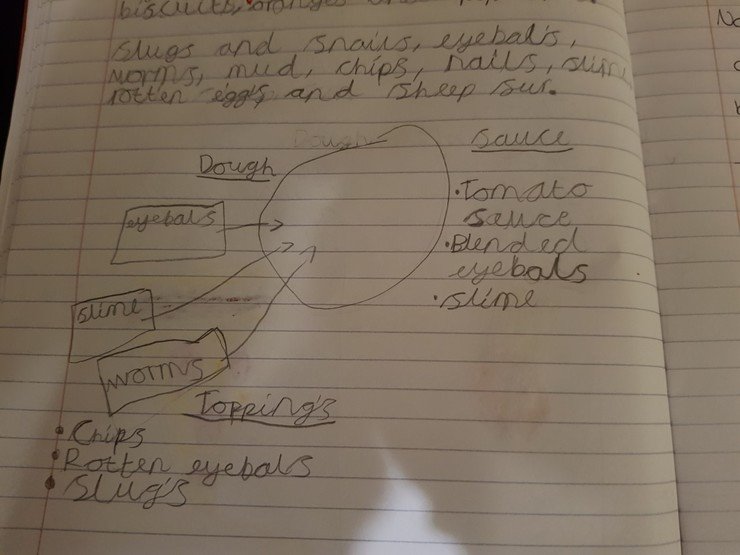 biscuits, oranges
slugs and snails, eyebals,
worms, mud, chips, nails, slim
rotten eggs, and sheep sur.
Dough
Dough
sauce
eyebals
slime
worms
•Tomato
sauce
•Blended
eyebals
•slime
Topping's
•Chips
•Rotten eyebals
•Slug's
No